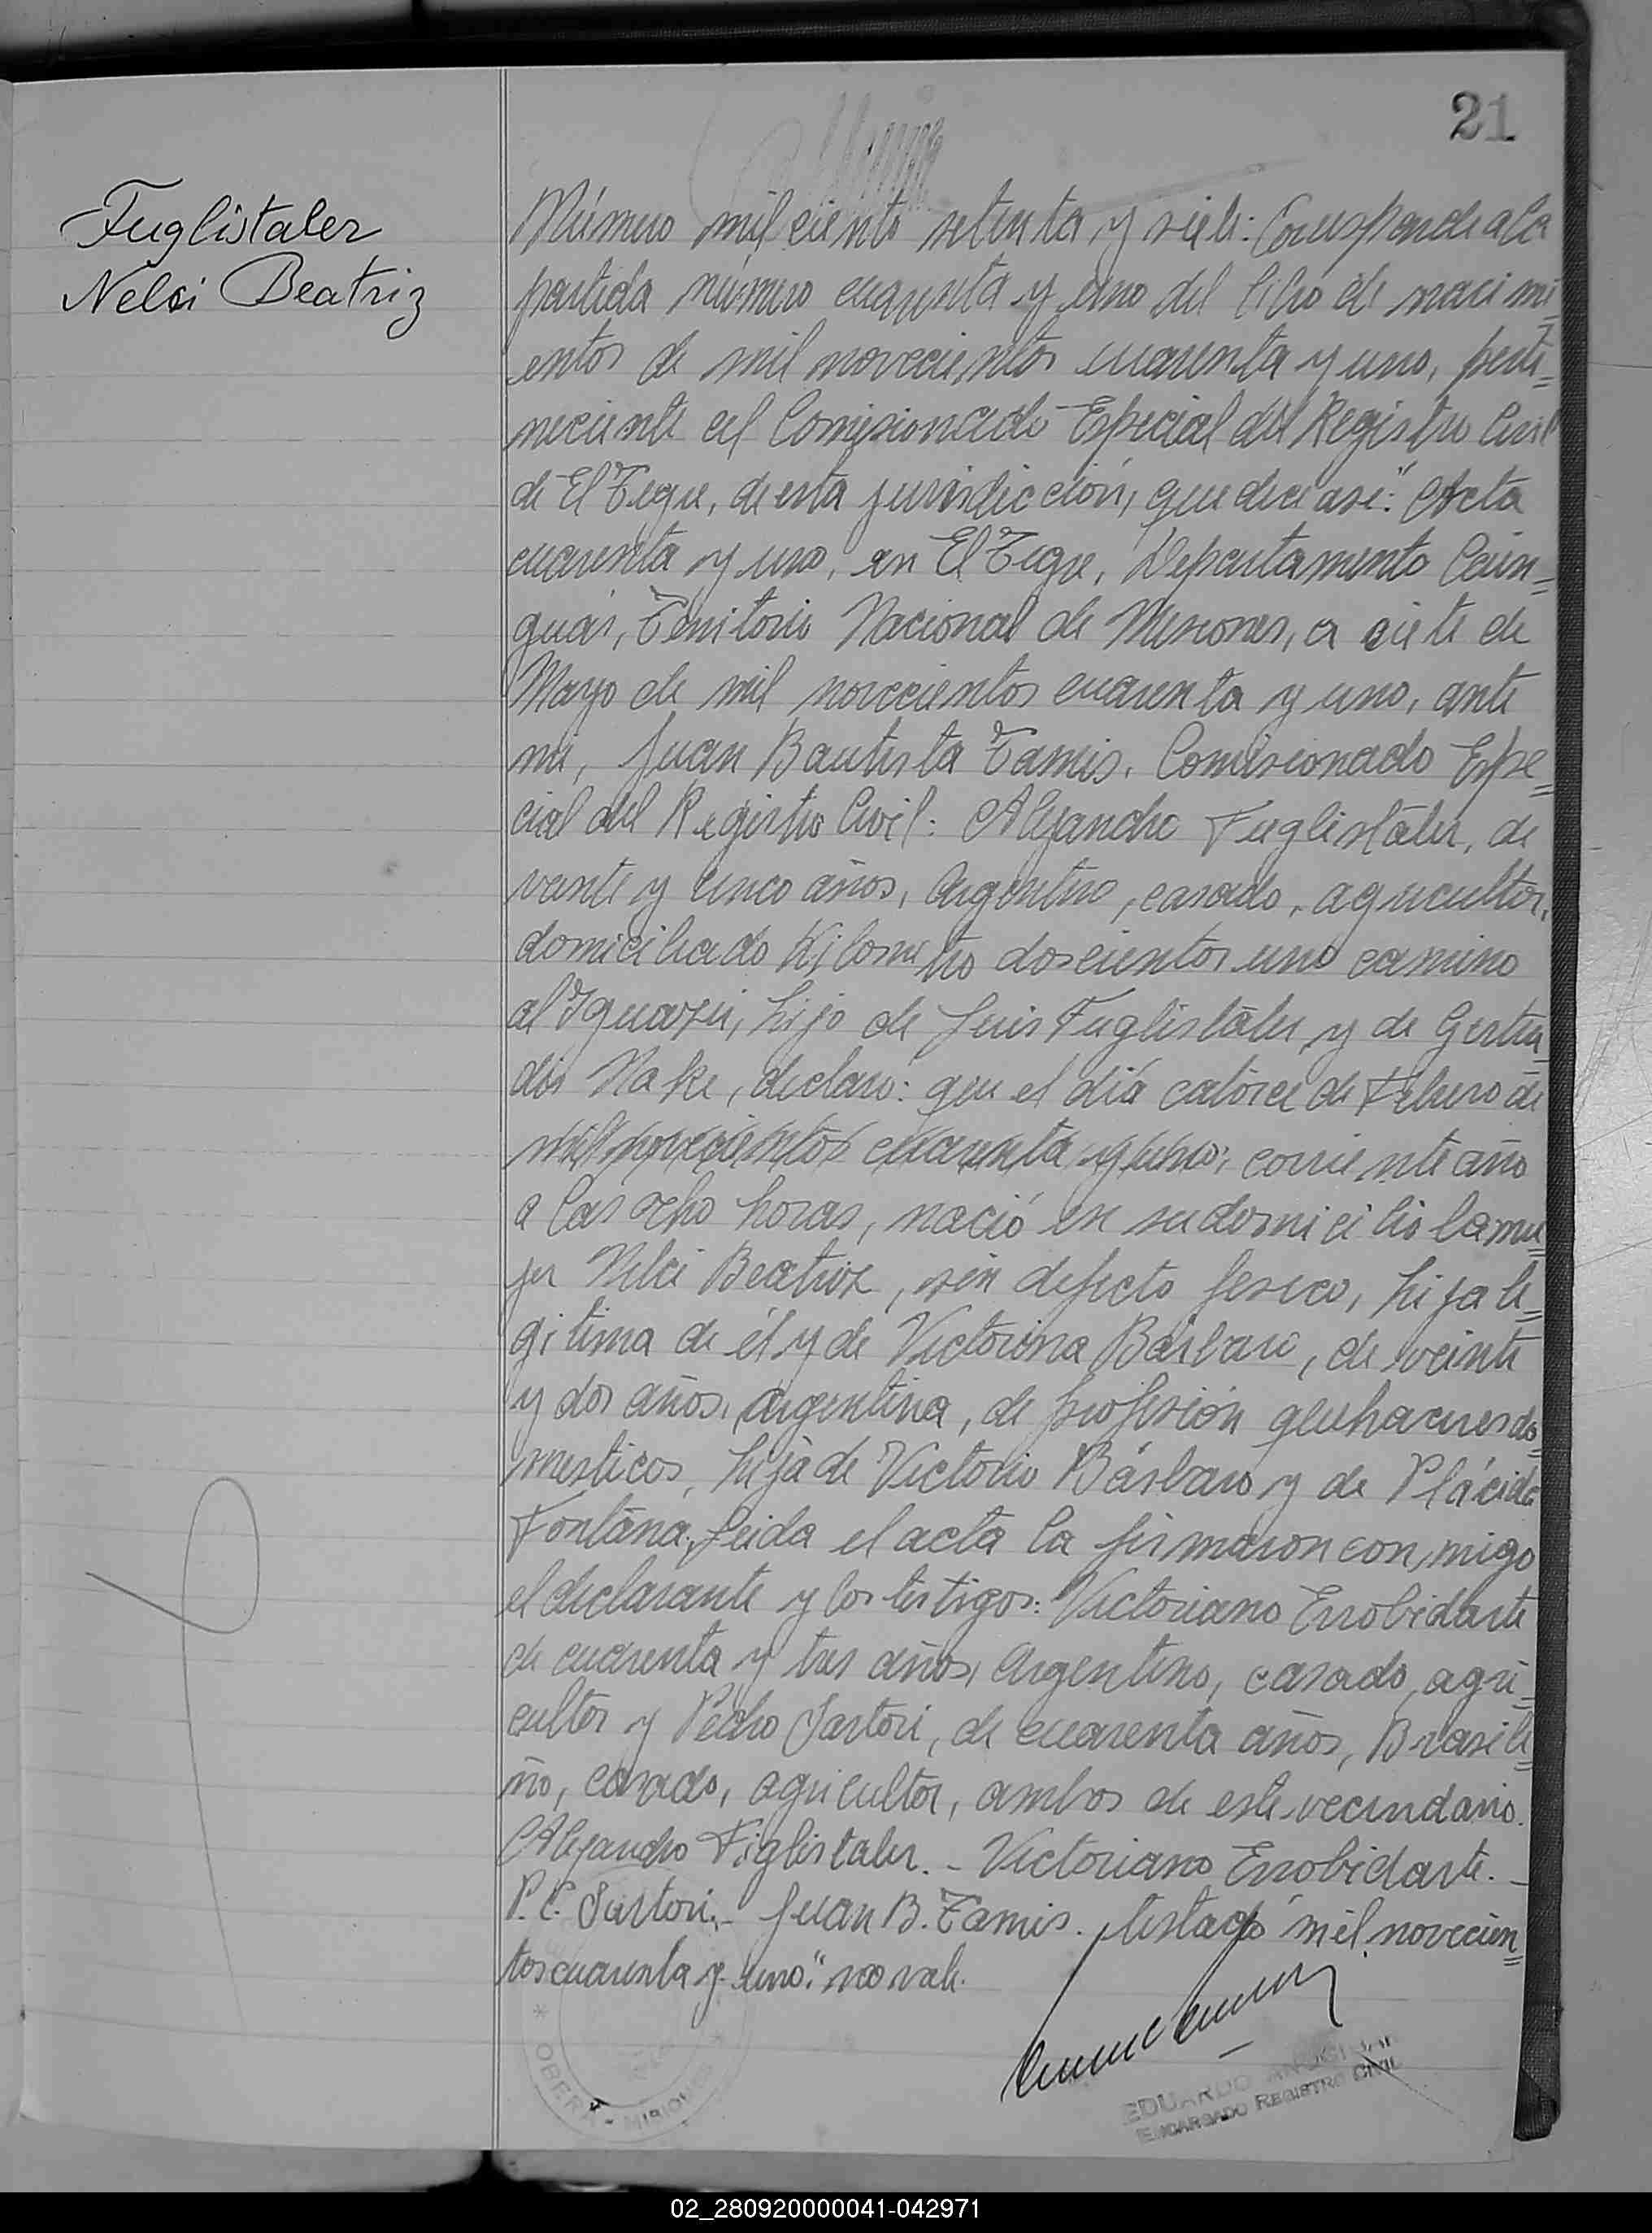 21
Fuglistaler
Nelci Beatriz
Número mil ciento setenta y siete: Corresponde a la
partida número cuarenta y uno del libro de nacimi=
entos de mil novecientos cuarenta y uno, perte=
neciente al Comisionado Especial del Registro Civil
de El Tigre, de esta jurisdicción, que dice así:" Acta
cuarenta y uno, en El Tigre, Departamento Cain=
guás, Territorio Nacional de Misiones, a siete de
Mayo de mil novecientos cuarenta y uno, ante
mi, Juan Bautista Tamis, Comisionado Espe=
cial del Registro Civil: Alejandro Fuglistaler, de
veinte y cinco años, Argentino, casado, agricultor,
domiciliado Kilometro doscientos uno camino
al Iguazú, hijo de Luis Fuglistaler y de Gertru=
dis Nake, declaró: que el día catorce de Febrero de
mil novecientos cuarenta y uno, corriente año
a las ocho horas, nació en su domicilio la mu=
jer Nelci Beatriz, sin defecto fisico, hija le=
gitima de él y de Victorina Bárbaro, de veinte
y dos años, argentina, de profesión quehaceres do=
mesticos, hija de Victorio Bárbaro y de Plácida
Fontana, Leida el acta la firmaron con migo
el declarante y los testigos: Victoriano Errobidarte
de cuarenta y tres años, Argentino, casado, agri=
cultor y Pedro Sartori, de cuarenta años, Brasile=
ño, casado, agricultor, ambos de este vecindario.
Alejandro Figlistaler. - Victoriano Errobidarte. -
P. C. Sartori. - Juan B. Tamis. testado "mil novecien=
tos cuarenta y uno": no vale.
OBERA - MISIONES
EDUARDO
ENCARGADO REGISTRO CIVIL
02_280920000041-042971